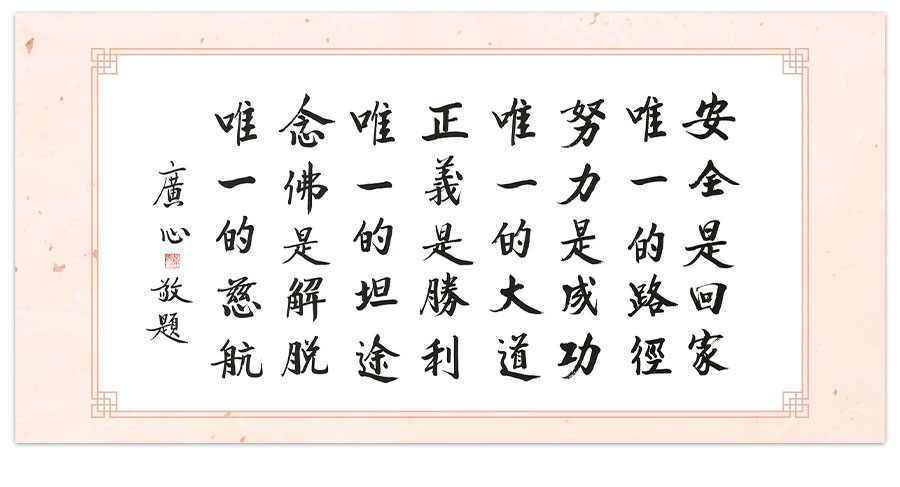 安全是回家
唯一的路徑
努力是成功
唯一的大道
正義是勝利
唯一的坦途
念佛是解脫
唯一的慈航
廣心敬題